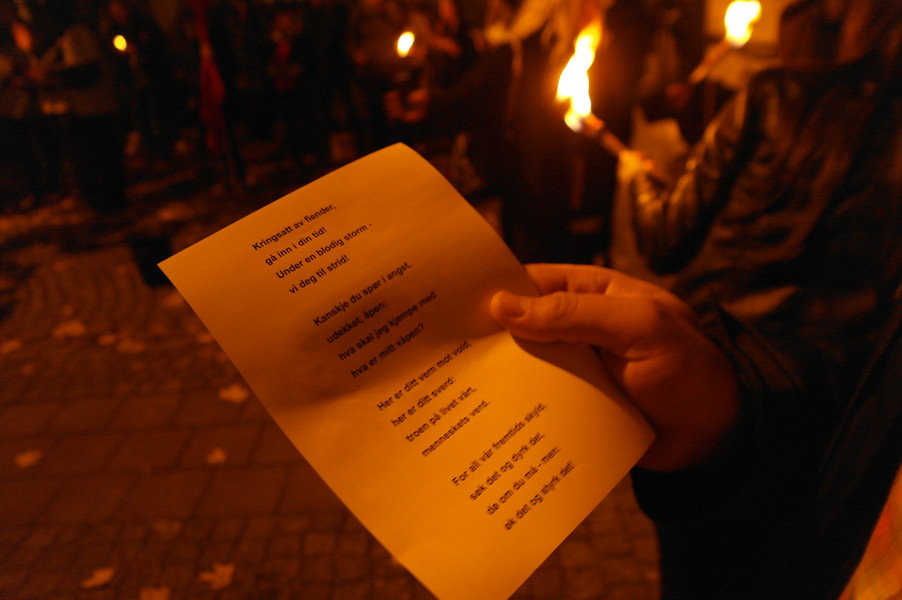 Kringsatt av fiender,
gå inn i din tid!
Under en blodig storm -
vi deg til strid!
Kanskje du spør i angst,
udekket, åpen:
hva skal jeg kjempe med
hva er mitt våpen?
Her er ditt vern mot vold,
her er ditt sverd:
troen på livet vårt,
menneskets verd.
For all vår fremtids skyld,
søk det og dyrk det,
dø om du må - men:
øk det og styrk det!